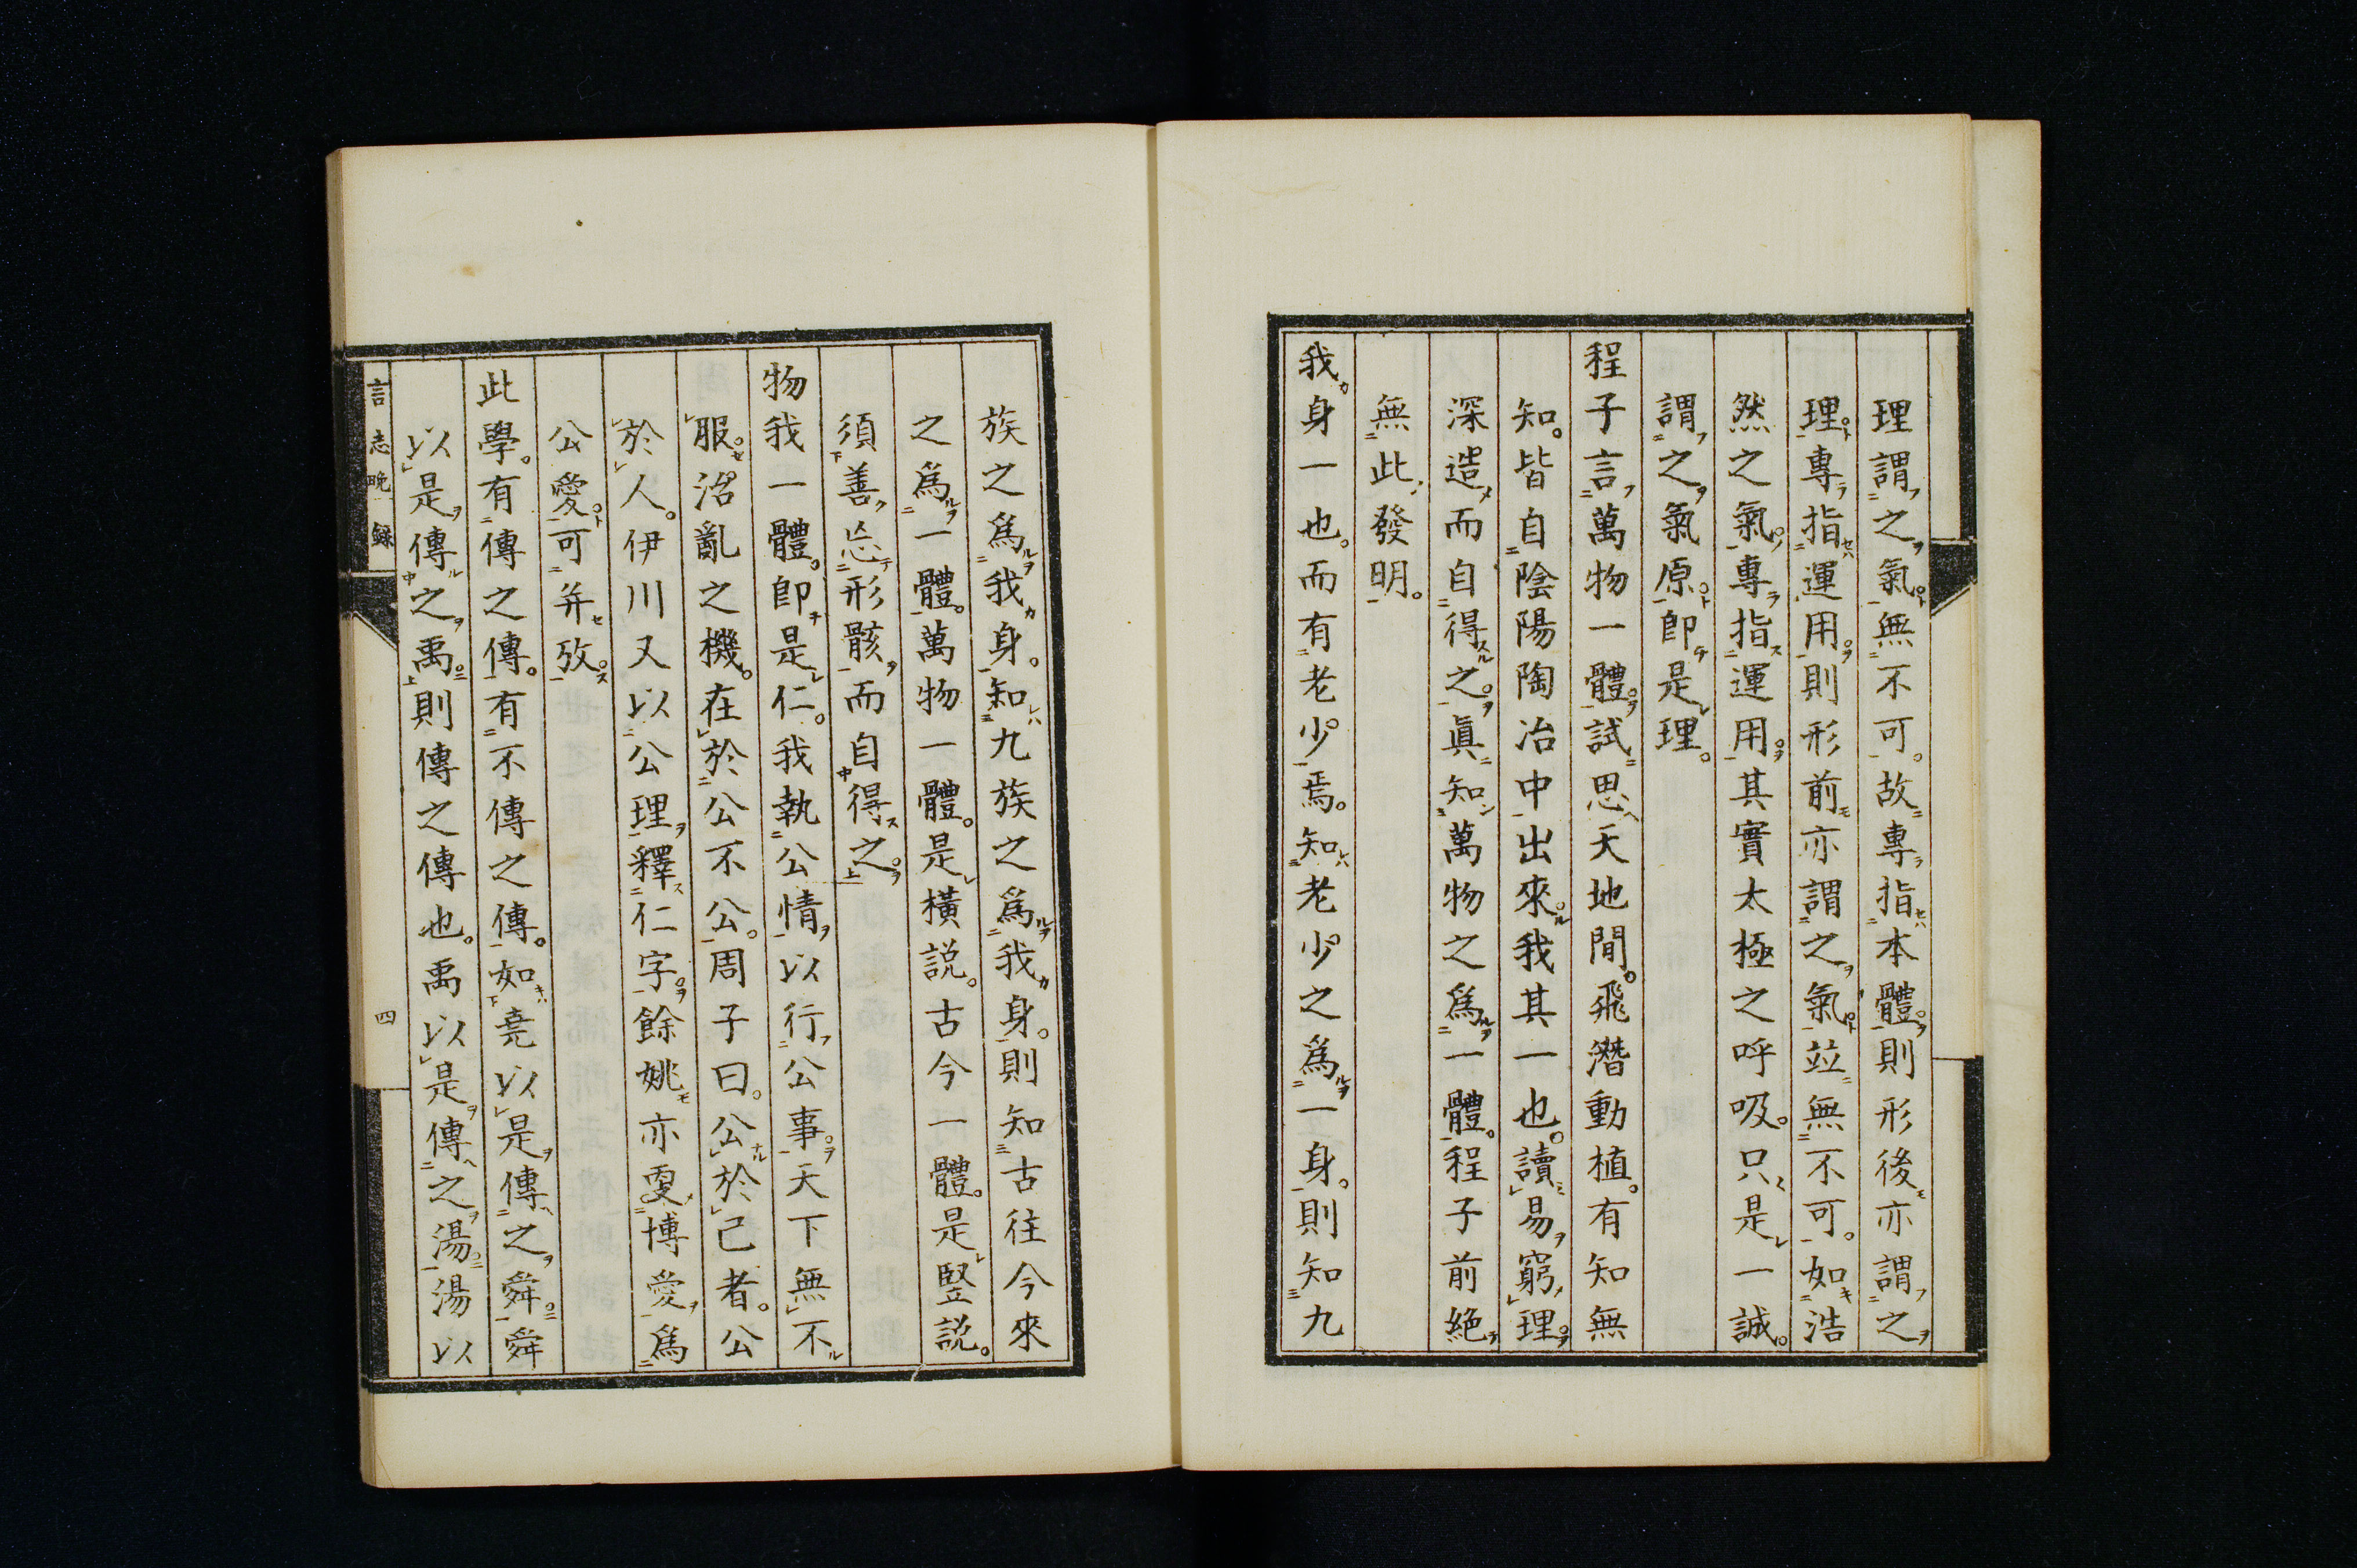 理謂之氣無不可。故專指本體則形後亦謂之
理。專指運用。則形前亦謂之氣。竝無不可。如浩
然之氣。專指運用。其實太極之呼吸。只是一誠。
謂之氣原。卽是理。
程子言萬物一體。試思天地間。飛潛動植。有知無
知。皆自陰陽陶冶中出來。我其一也。讀易窮理。
深造而自得之。眞知萬物之爲一體。程子前絶
無此發明。
我身一也。而有老少焉。知老少之爲一身。則知九
族之爲我身。知九族之爲我身。則知古往今來
之爲一體。萬物一體。是橫説。古今一體。是竪説。
須善忘形骸而自得之。
物我一體。卽是仁。我執公情以行公事。天下無不
服。治亂之機。在於公不公。周子曰。公於己者。公
於人。伊川又以公理釋仁字。餘姚亦更博愛爲
公愛。可幷攷。
此學。有傳之傳。有不傳之傳。如堯以是傳之舜。舜
以是傳之禹。則傳之傳也。禹以是傳之湯。湯以
言志晩錄
四